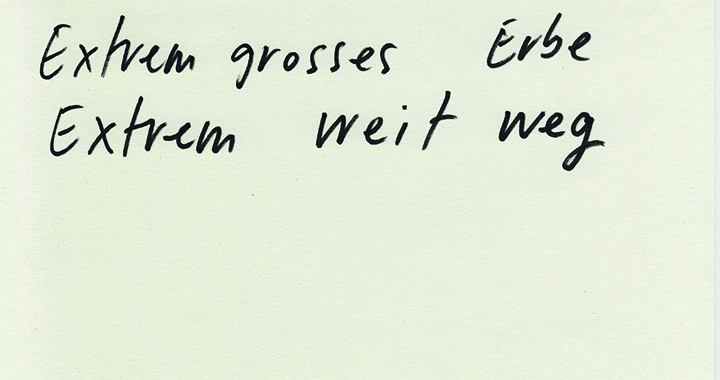 Extrem grosses Erbe
Extrem weit weg